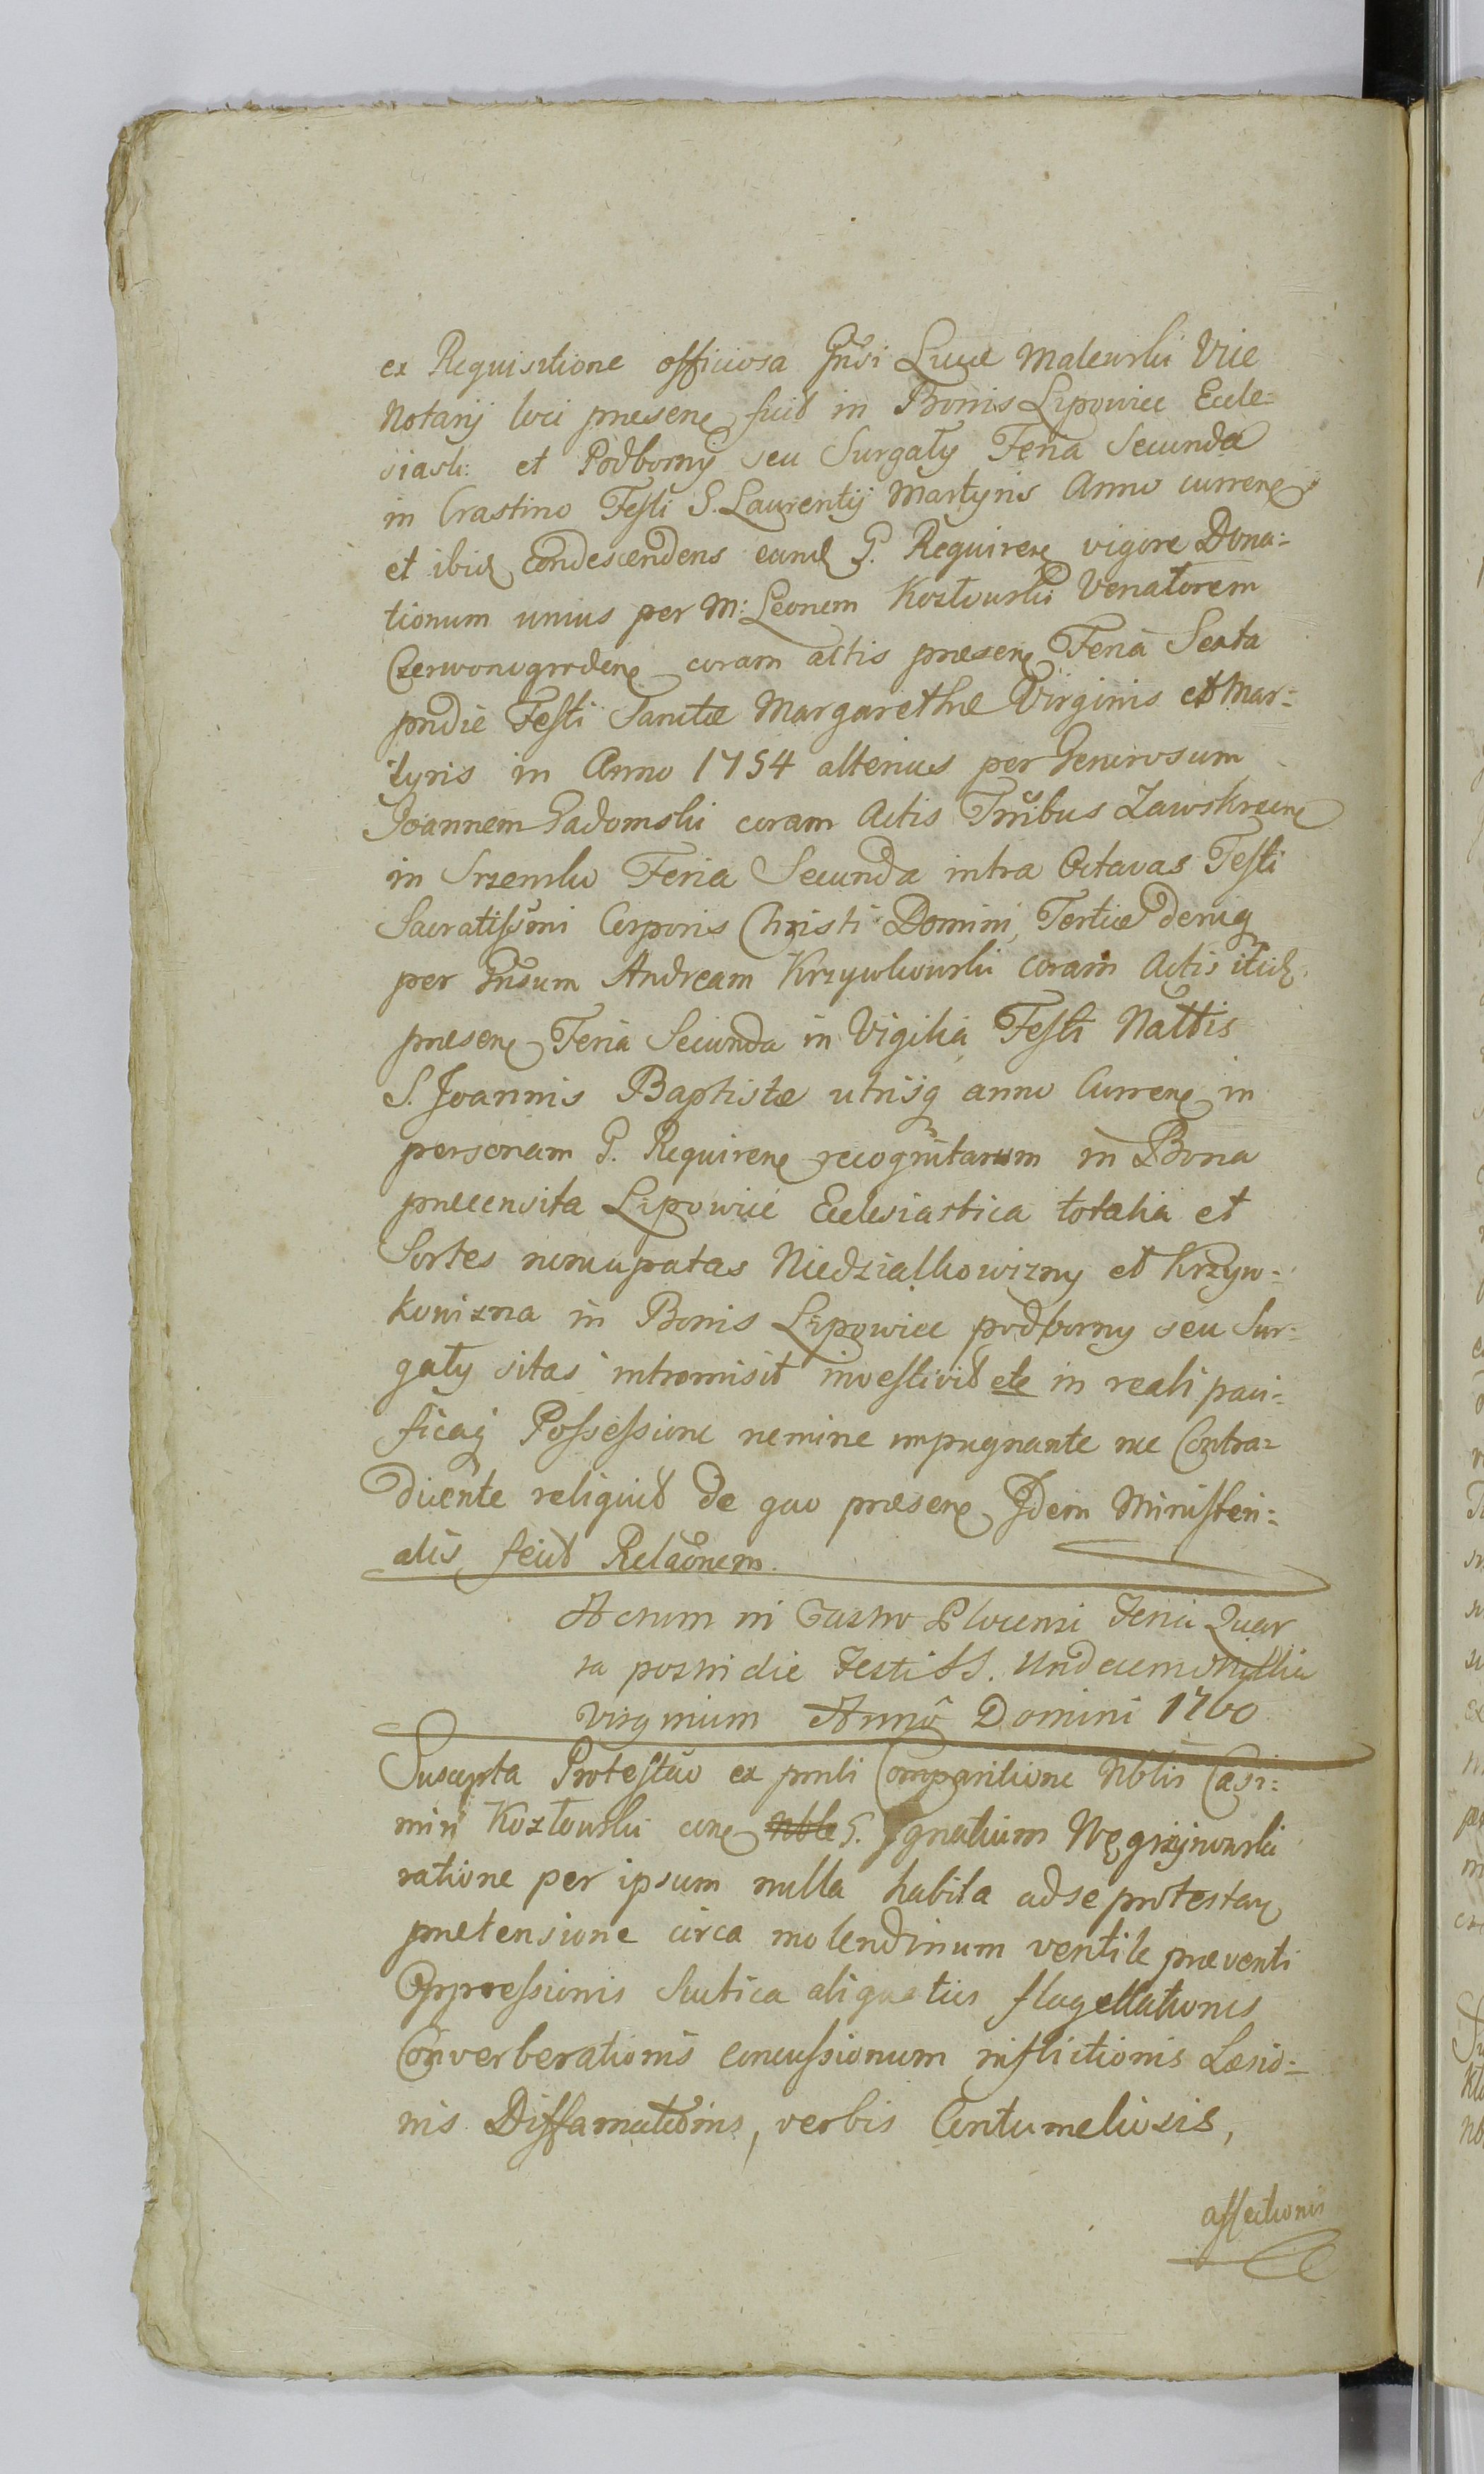 ex Requisitione officiosa Gnsi Lucæ Malewski Vice
Notarij loci præsenę fuit in Bonis Lipowiec Eccle=
siast: et Podborny seu Surgały Feria Secunda
in Crastino Festi S. Laurentij Martyris Anno currenę
et ibidę condescendens eundę G. Requirenę vigore Dona=
tionum unius per M: Leonem Kozłowski Venatorem
Czerwonogrodenę coram actis præsenę Feria Sexta
pridie Festi Sanctæ Margarethæ Virginis et Mar=
tyris in Anno 1754 alterius per Generosum
Joannem Gadomski coram Actis Trribus Zawskrzenę
in Srzensko Feria Secunda intra Octavas Festi
Sacratissimi Corporis Christi Domini, Tertiæ deniq
per Gnsum Andream Krzywkowski coram Actis itidę
præsenę Feria Secunda in Vigilia Festi Nattis
S. Joannis Baptistæ utrisq anno Currenę in
personam G. Requirenę recognitarum in Bona
præcensita Lipowiec Ecclesiastica totalia et
Sortes nuncupatas Niedziałkowizny et Krzyw=
kowizna in Bonis Lipowiec podborny seu Sur=
gały sitas intromisit investivit etc in reali paci=
ficaq Possessione nemine impugnante nec Contra=
dicente reliquit de quo præsenę Idem Ministeri=
alis fecit Relaõnem.
Actum in Castro Plocensi Feria Quar
ta postridie Festi SS. Undecem Millia
Virginium Anno Domini 1760
Suscepta Protestãо ex pnnli Comparitione Nblis Casi=
miri Kozłowski conę Nble G. Ignatium Węgrzynowski
ratione per ipsum nulla habita ad se protestanę
prætensione circa molendinum ventile præventi
Oppressionis Scutica aliquoties flagellationis
Converberationis concussionum inflictionis Læsio=
nis Diffamationis, verbis Contumeliosis,
affectionis